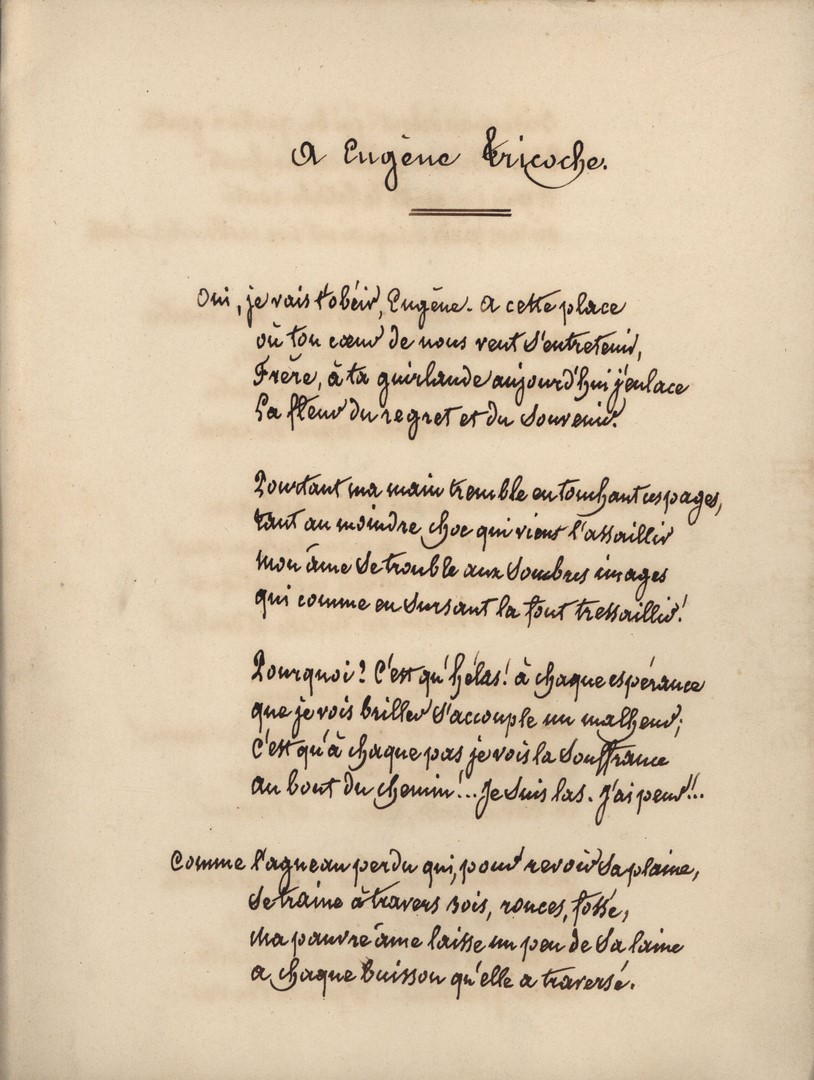 A Eugène Tricoche.
Oui, je vais t'obéir, Eugène. A cette place
où ton cœur de nous veut s'entretenir,
Frère, à ta guirlande aujourd'hui j'enlace
La fleur du regret et du souvenir.
Pourtant ma main tremble en touchant ces pages,
tant au moindre choc qui vient l'assaillir
mon âme se trouble aux sombres images
qui comme en sursaut la font tressaillir!
Pourquoi? C'est qu'hélas! à chaque espérance
que je vois briller s'accouple un malheur;
c'est qu'à chaque pas je vois la souffrance
au bout du chemin!... Je suis las. J'ai peur!!..
Comme l'agneau perdu qui, pour revoir sa plaine,
se traine à travers bois, ronces, fossé,
ma pauvre âme laisse un peu de sa laine
a chaque buisson qu'elle a traversé.